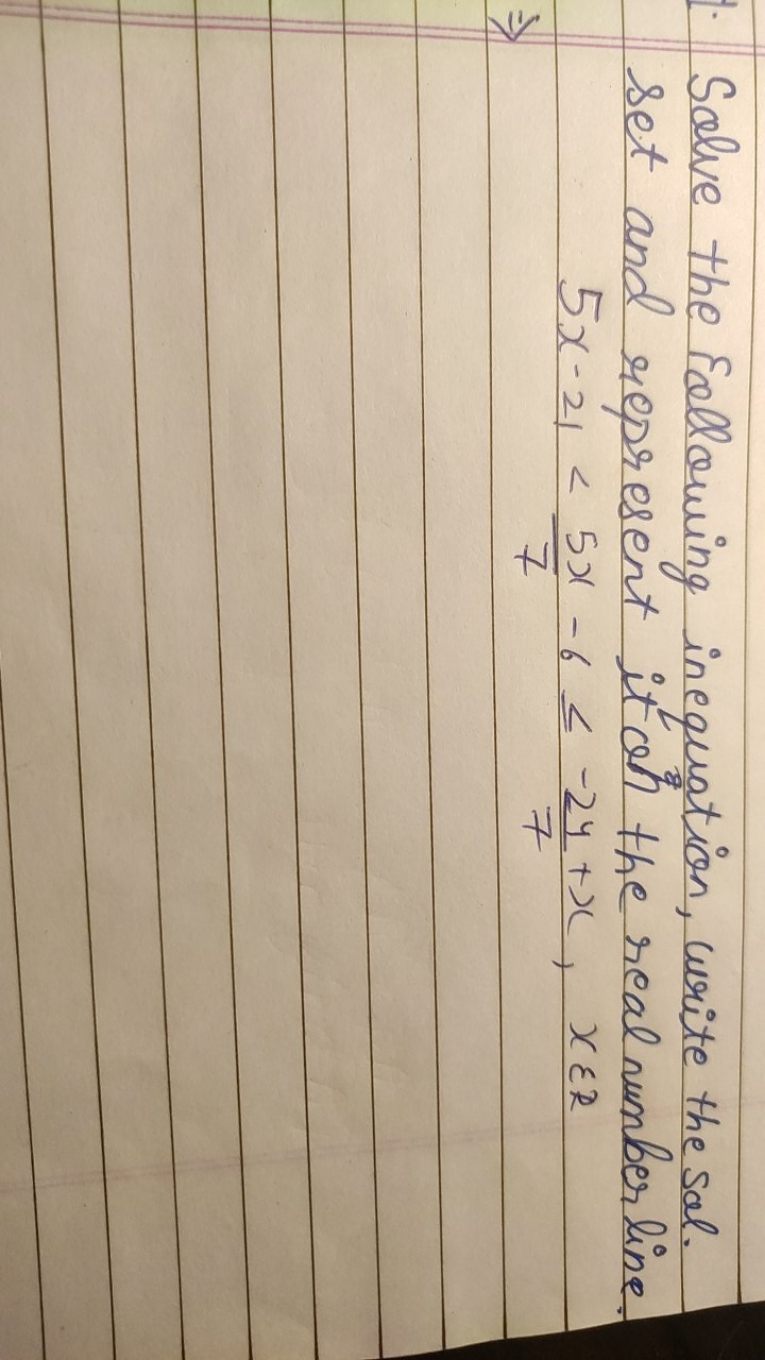 Solve the following inequation, write the sol.
set and represent it on the real number line.
5x - 21 < 5x/7 - 6 ≤ -24/7 + x, x ε R
⇒